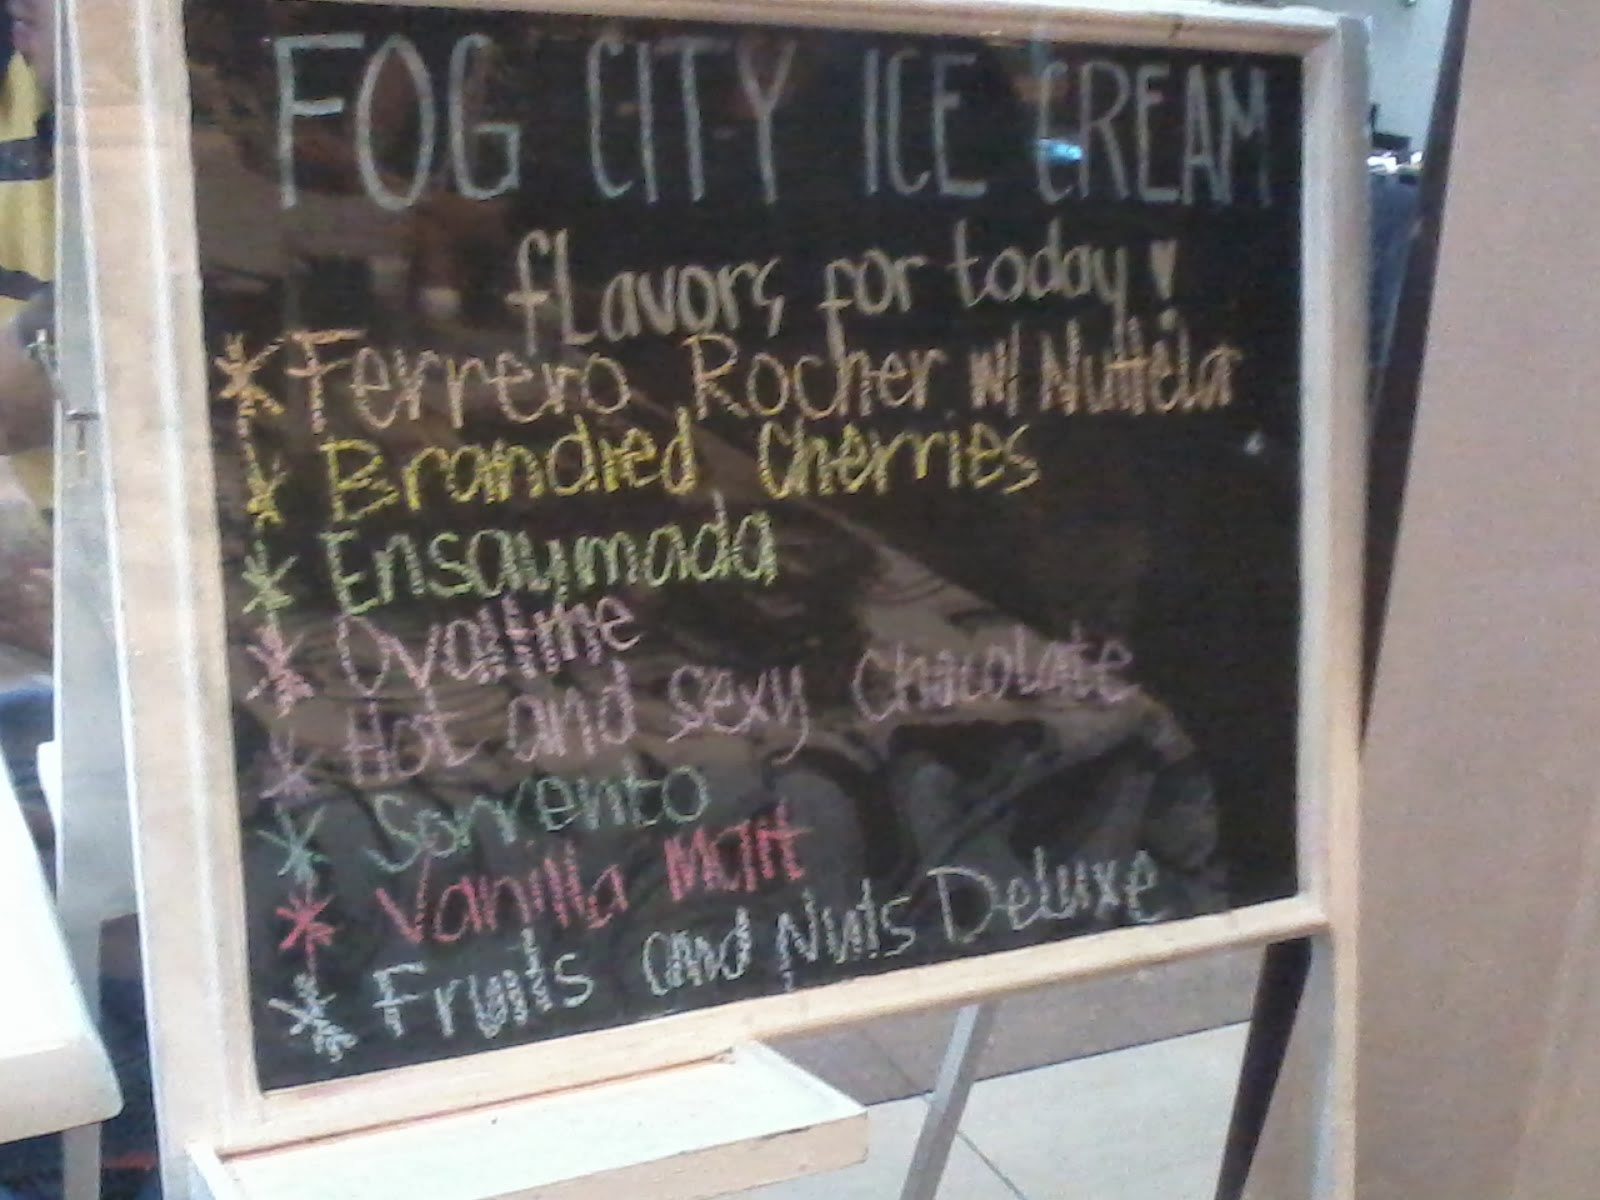 FOG CITY ICE CREAM
fLavors for today
* Ferrero Rocher w/ Nuttela
* Brandied Cherries
* Ensaymada
* Ovaltine
* Hot and sexy Chocolate
* Sorrento
* Vanilla Malt
* Fruits and Nuts Deluxe